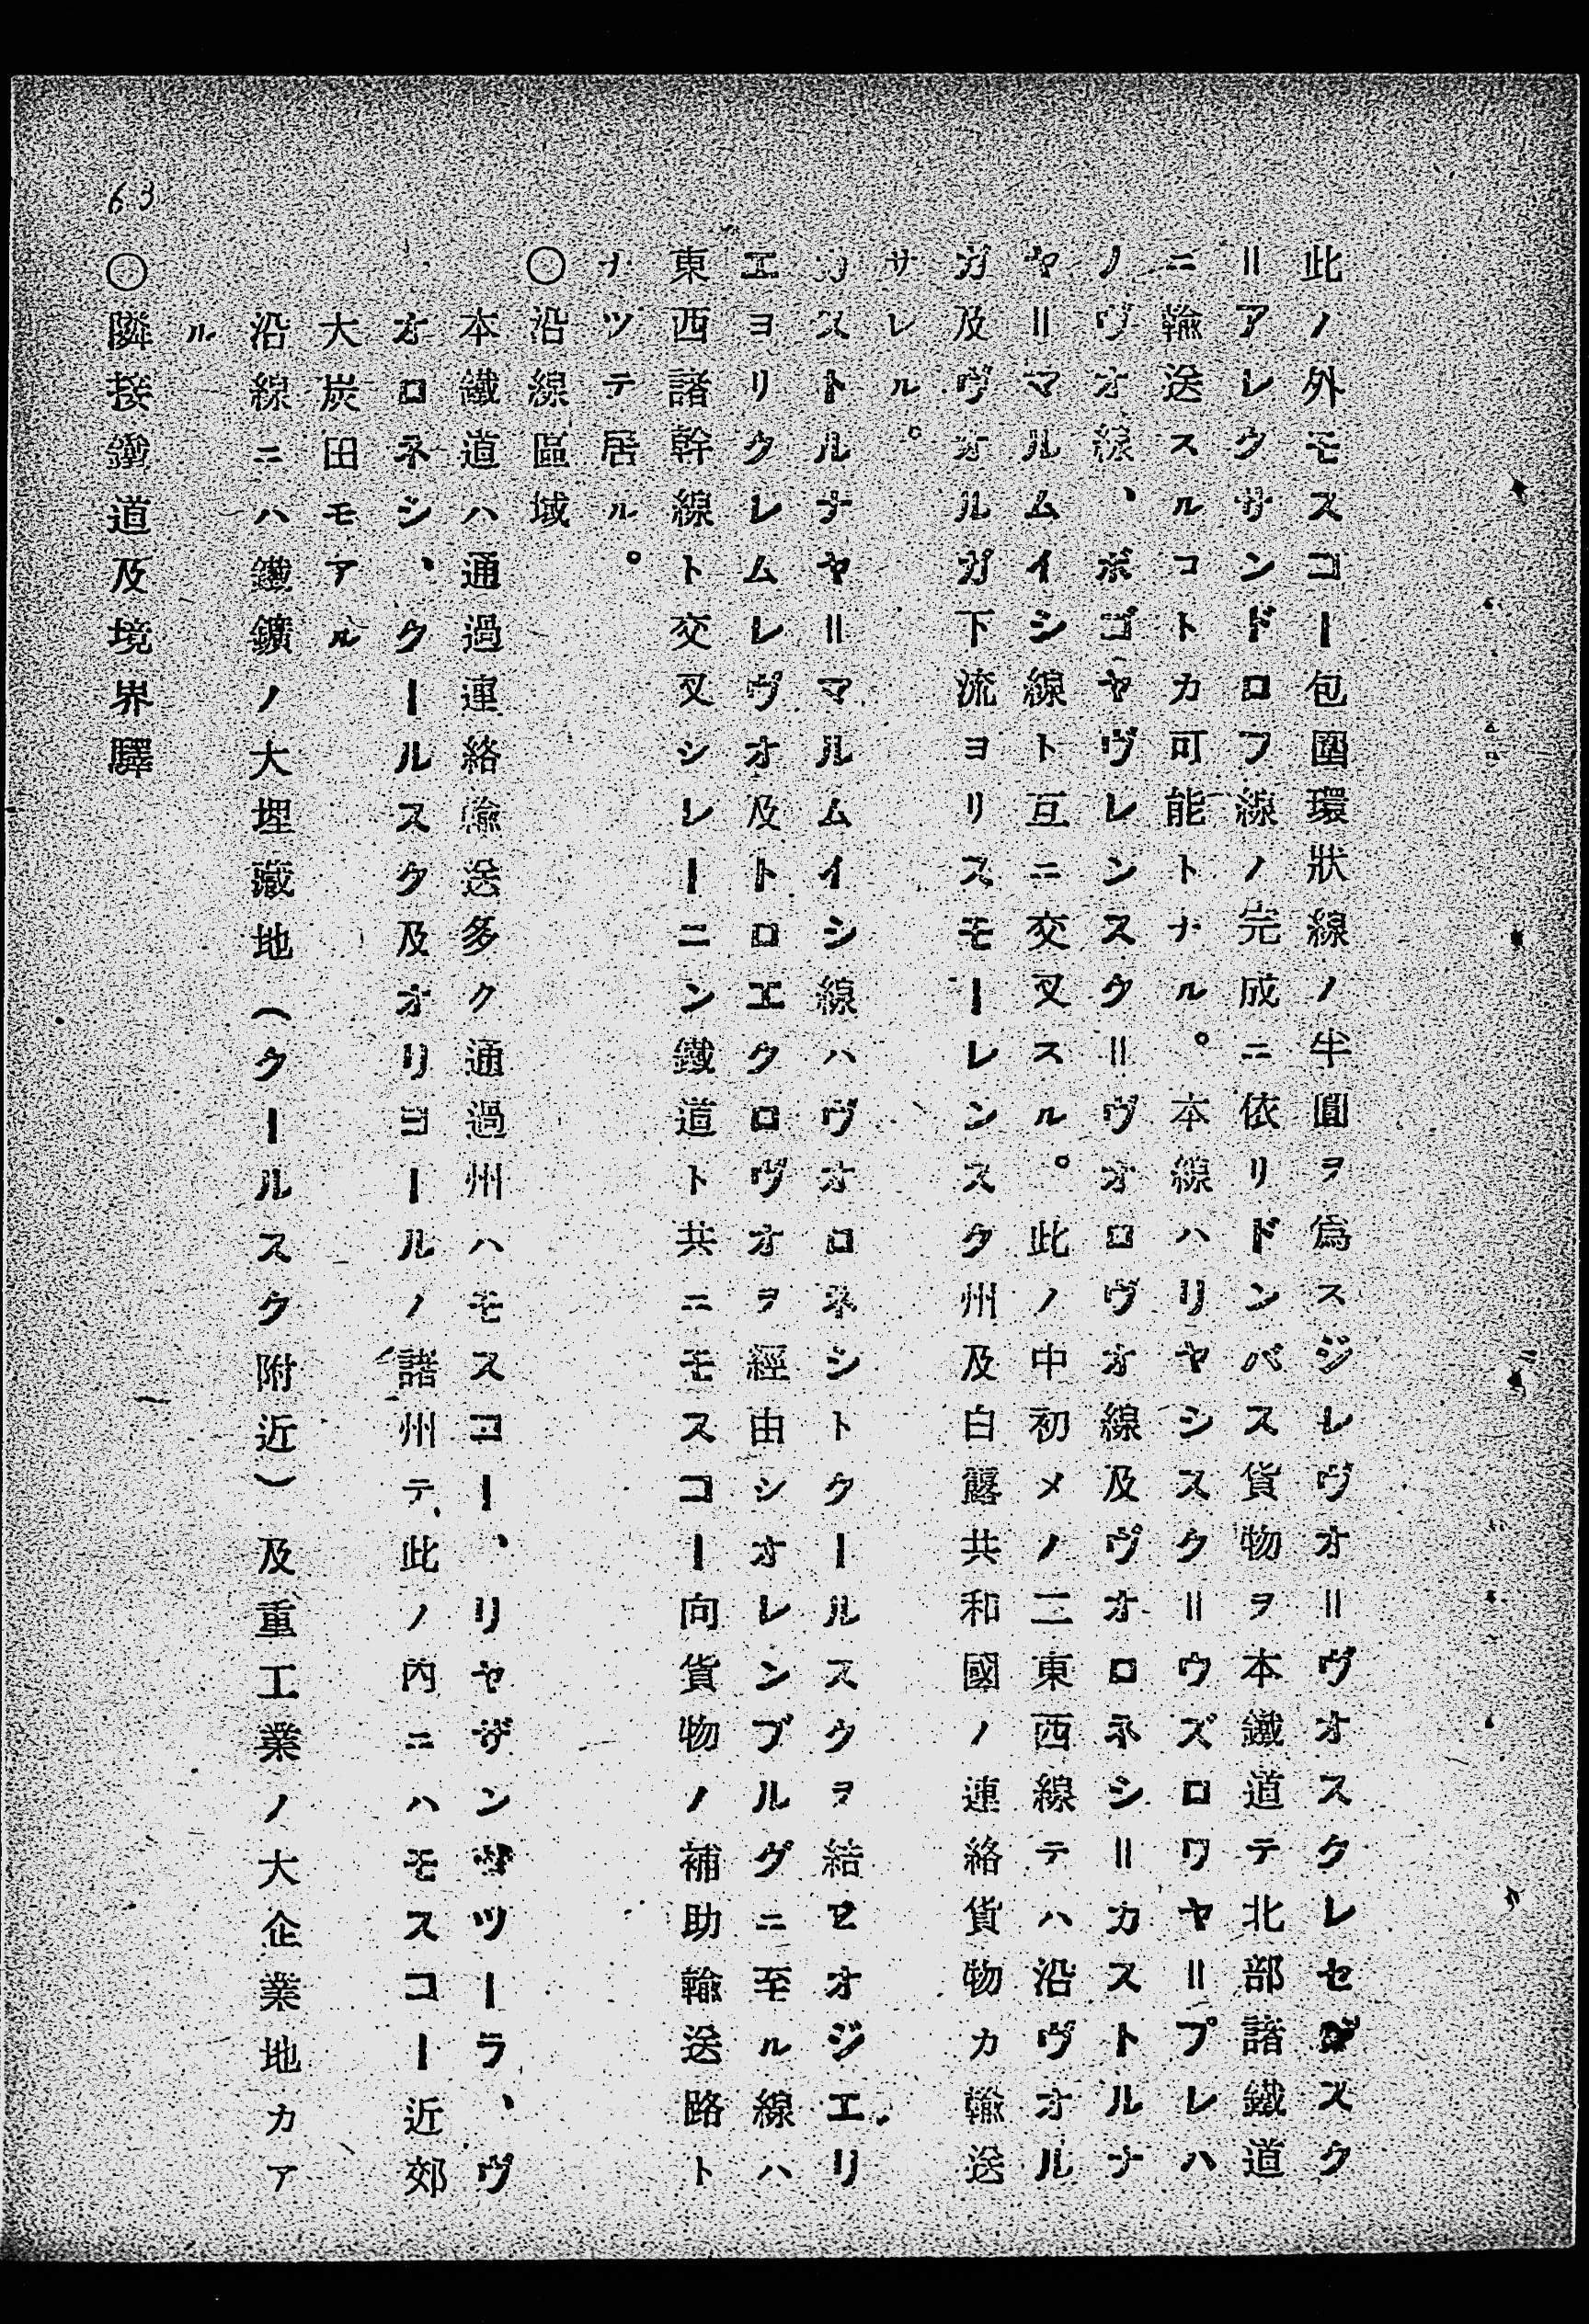 此ノ外モスコー包圍環狀線ノ半圓ヲ爲スジレヴオ＝ヴオスクレセンスク
＝アレクサンドロフ線ノ完成ニ依リドンバス貨物ヲ本鐵道テ北部諸鐵道
ニ輸送スルコトカ可能トナル。本線ハリヤシスク＝ウズロワヤ＝プレハ
ノヴオ線、ボゴヤヴレンスク＝ヴオロヴオ線及ヴオロネシ＝カストルナ
ヤ＝マルムイシ線ト互ニ交叉スル。此ノ中初メノ二東西線テハ沿ヴオル
ガ及ヴオルガ下流ヨリスモーレンスク州及白露共和國ノ連絡貨物カ輸送
サレル。
カストルナヤ＝マルムイシ線ハヴオロネシトクールスクヲ結ヒオジエリ
エヨリクレムレヴオ及トロエクロヴオヲ經由シオレンブルグニ至ル線ハ
東西諸幹線ト交叉シレーニン鐵道ト共ニモスコー向貨物ノ補助輸送路ト
ナツテ居ル。
〇沿線區域
本鐵道ハ通過連絡輸送多ク通過州ハモスコー、リヤザンツーラ、ヴ
オロネシ、クールスク及オリヨールノ諸州テ、此ノ內ニハモスコー近郊
大炭田モアル
沿線ニハ鐵鑛ノ大埋藏地（クールスク附近）及重工業ノ大企業地カア
ル
〇隣接鐵道及境界驛
63